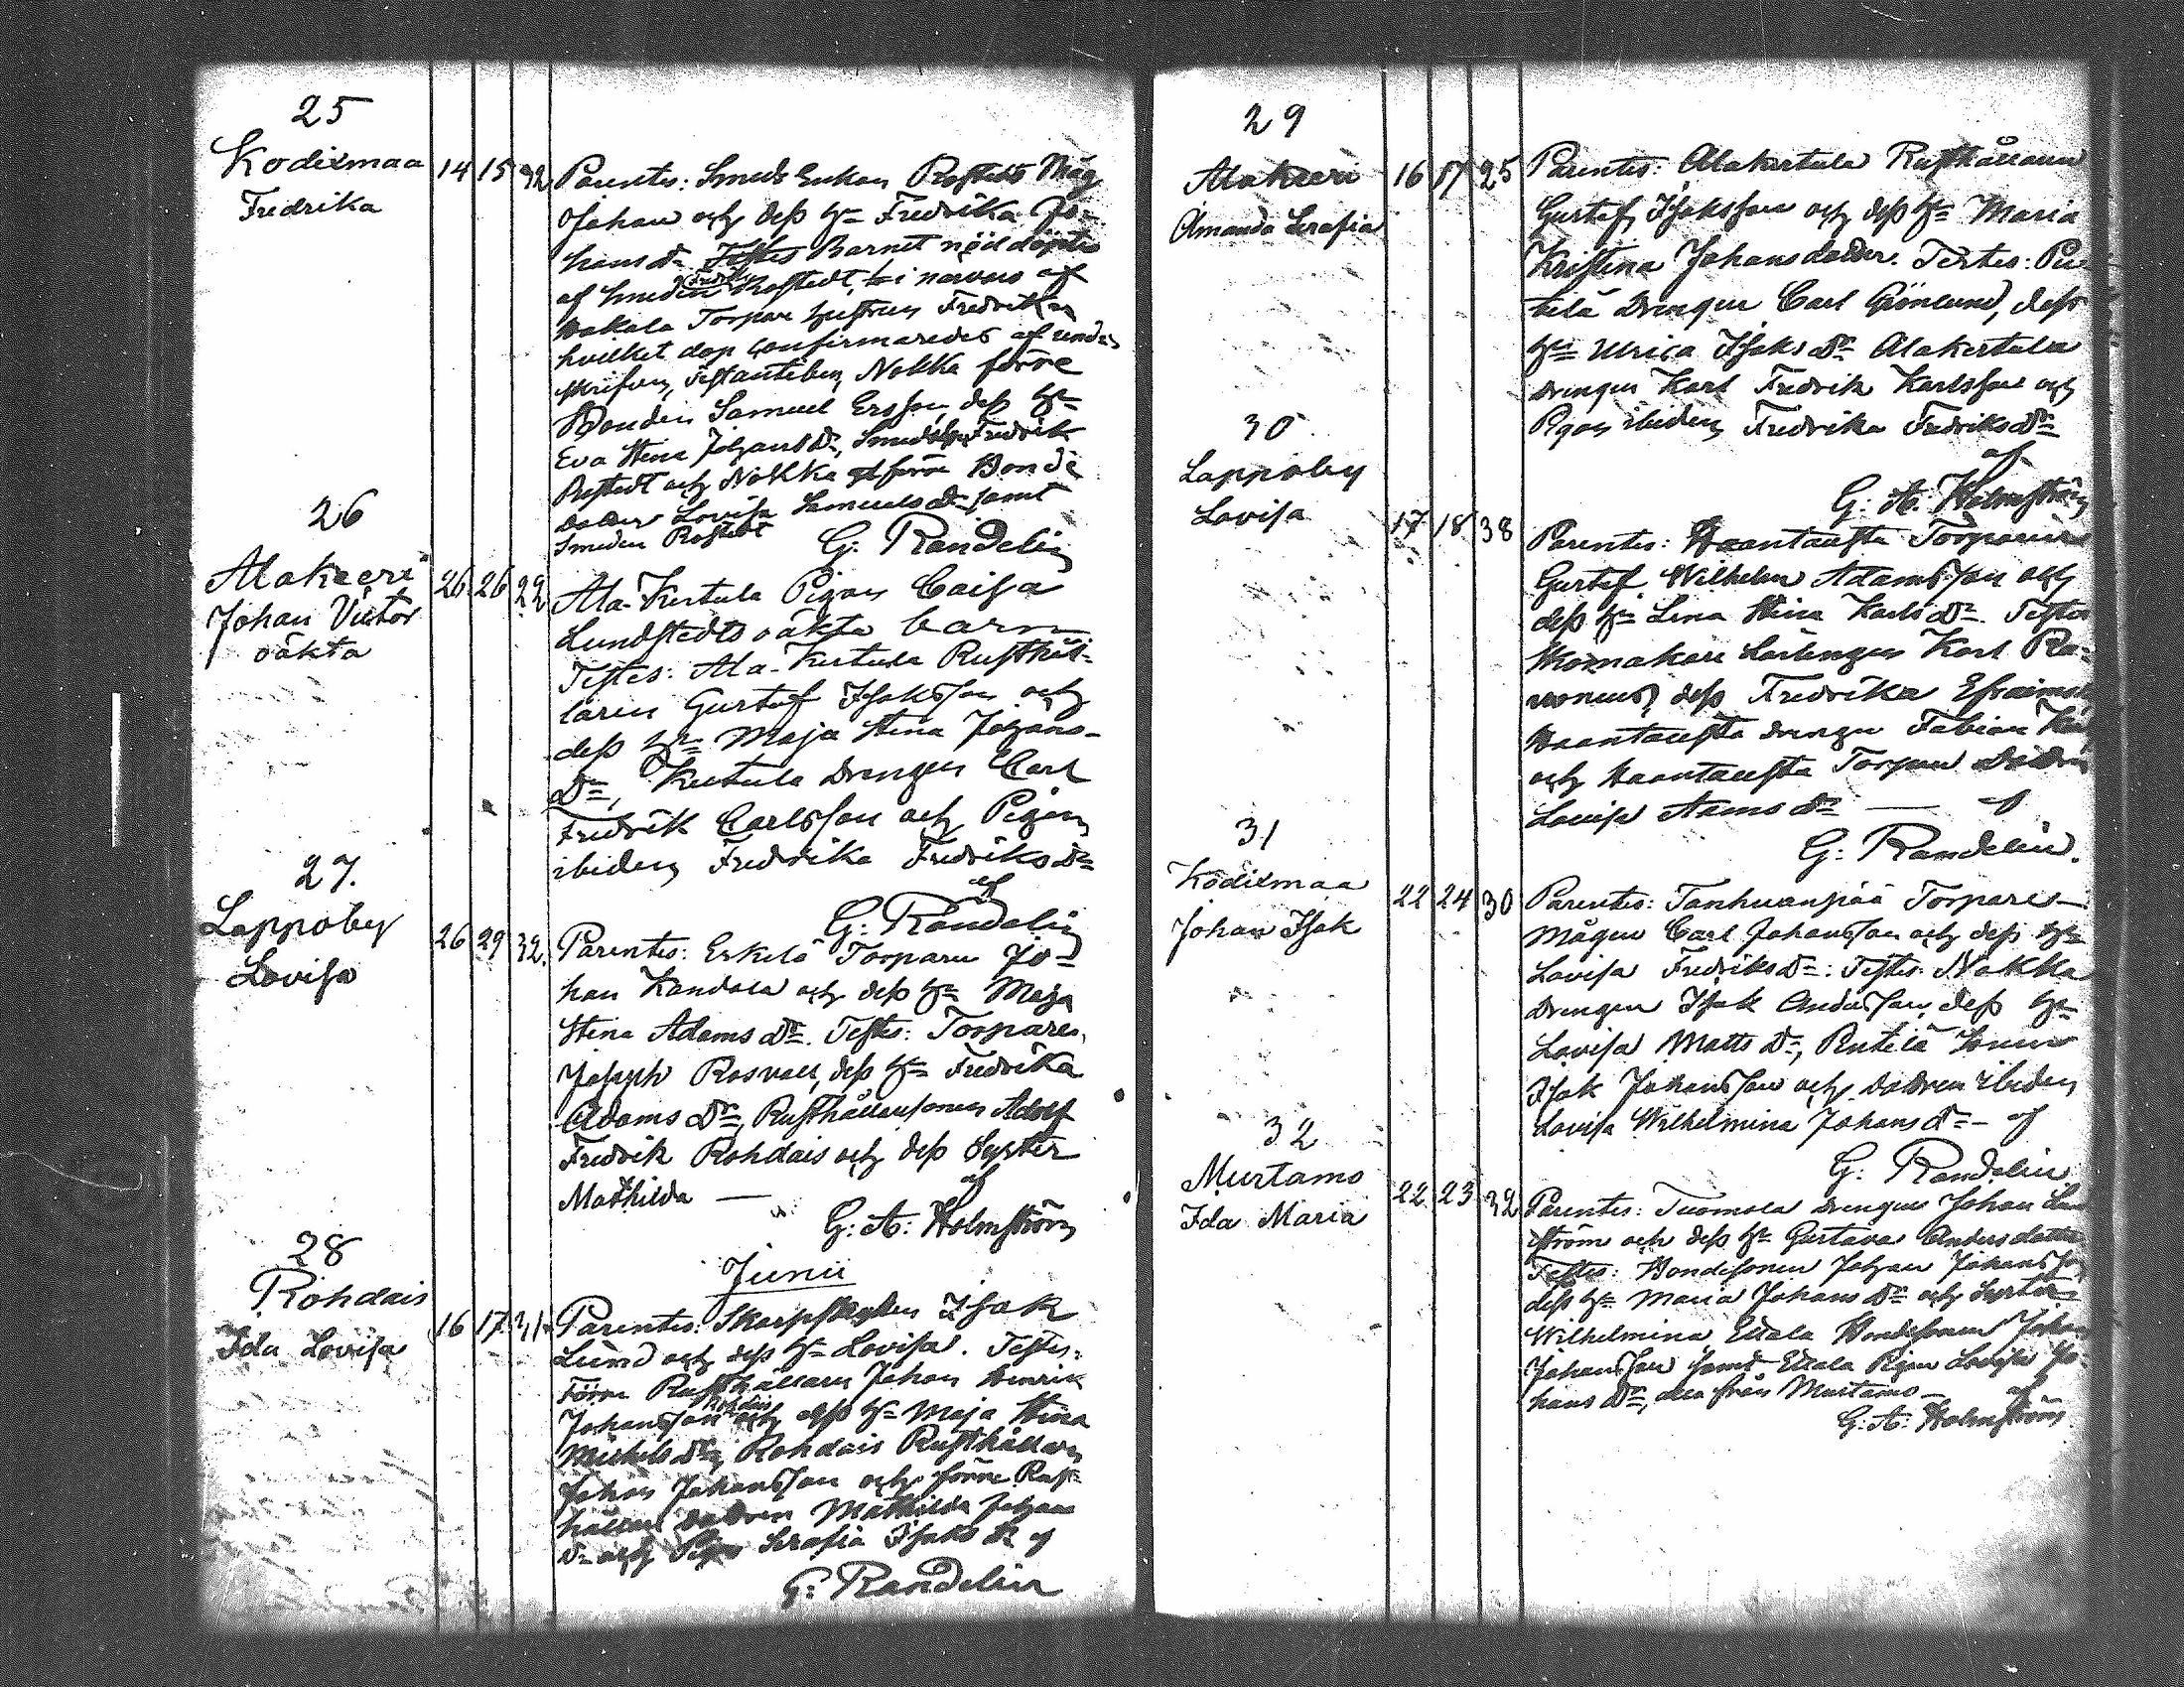 25
Kodixmaa
Fredrika
14 15 32
Parentes: Smeds Enkan Rostedts Måg
Johan och dess Hu Fredrika Jo-
hans Dr. Testes Barnet nöddöptes
af Smeden Fredr Rostedt, i närvaro af
Torpare hustrun Fredrika
hvilket dop confirmerades af under
skrifven, Nokka förre
Bonden Samuel Ersson dess Hu
Eva Stina Johans Dr, Fredrik
Rostedt och Nokka förre Bonde
Dottern Lovisa Samuels Dr samt
Smeden Rostedt
G: Randelin
26
Alakeeri
Johan Victor
oäkta
26 26 22
Ala-Kertula Pigan Caisa
Lundstedts oäkta barn
Testes: Ala-Kertula Rusthål-
laren Gustaf Isaksson och
dess Hu Maja Stina Johans-
Dr, Kertula Drengen Carl
Fredrik Carlsson och Pigan
ibidem Fredrika Fredriks Dr
af
G: Randelin
27.
Lappoby
Lovisa
26 29 32.
Parentes: Eskelä Torparen Jo-
han Kandola och dess Hu Maja
Stina Adams Dr. Testes: Torparen
Joseph Rosvall, dess Hu Fredrika
Adams Dr, Rusthållaresonen Adolf
Fredrik Rohdais och dess Syster
Mathilda —
af
G: A: Holmström
Junii
28
Rohdais
Ida Lovisa
16 17
Parentes: Skarpskytten Isak
Lund och dess Hu Lovisa. Testes:
Förre Rusthållaren Johan Henrik
Johansson Rohdais och dess Hu Maja Stina
Michels Dr, Rohdais Rusthållaren
Johan Johansson och förre Rust-
hållare Dottren Mathilda Johans
Dr och Pigan Serafia Isaks Dr af
G: Randelin
29
Alakeeri
Amanda Serafia
16 17 25
Parentes: Alakertula Rusthållaren
Gustaf Isaksson och dess Hu Maria
Kristina Johansdotter. Testes: Pu
tila Drengen Carl Grönlund, dess
Hu Ulrica Isaks Dr Alakertula
Drengen Karl Fredrik Karlsson och
Pigan ibidem Fredrika Fredriks Dr
af
G: A: Holmström
30
Lappoby
Lovisa
17 18 38
Parentes: Haantausta Torparen
Gustaf Wilhelm Adamsson och
dess Hu Lena Stina Karls Dr. Testes
Skomakare Lärlingen Karl
dess Fredrika Efraims
Haantausta Drengen Fabian
och Haantausta Torpare Dottern
Lovisa Adams Dr — af
G: Randelin.
31
Kodixmaa
Johan Isak
22 24 30
Parentes: Tanhuanpää Torpare-
Mågen Carl Johansson och dess Hu
Lovisa Fredriks Dr: Testes: Nokka
Drengen Isak Andersson, dess Hu
Lovisa Matts Dr, Rutilä Sonen
Isak Johansson och Dottren ibidem
Lovisa Wilhelmina Johans Dr - af
G: Randelin
32
Murtamo
Ida Maria
22 23 32
Parentes: Tuomola Drengen Johan
ström och dess Hu Gustava Andersdotter
Testes: Bondesonen Johan Johansson
dess Hu Maria Johans Dr och Syster
Wilhelmina Ettala Bondesonen Johan
Johansson samt Ettala Pigan Lovisa Jo-
hans Dr, alla från Murtamo — af
G: A: Holmström